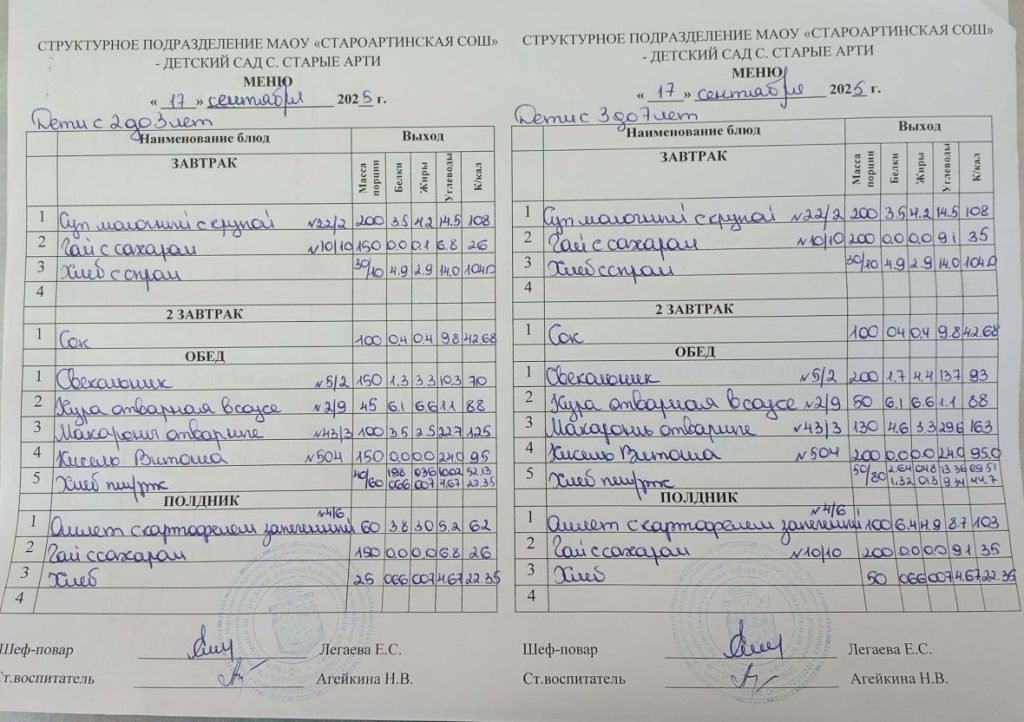 СТРУКТУРНОЕ ПОДРАЗДЕЛЕНИЕ МАОУ «СТАРОАРТИНСКАЯ СОШ»
- ДЕТСКИЙ САД С. СТАРЫЕ АРТИ
МЕНЮ
« 17 » сентября 2025 г.
Дети с 2 до 3 лет
Наименование блюд Выход
ЗАВТРАК Масса порции Белки Жиры Углеводы К/кал
1 Суп молочный с крупой №22/2 200 3.5 4.2 14.5 108
2 Чай с сахаром №10/10 150 0.0 0.1 6.8 26
3 Хлеб с сыром 30/10 4.9 2.9 14.0 104.0
4
2 ЗАВТРАК
1 Сок 100 0.4 0.4 9.8 42.68
ОБЕД
1 Свекольник №5/2 150 1.3 3.3 10.3 70
2 Кура отварная в соусе №2/9 45 6.1 6.6 1.1 88
3 Макароны отварные №43/3 100 3.5 2.5 22.7 125
4 Кисель Витоша №504 150 0.0 0.0 24.0 95
5 Хлеб пш/рж 40/60 1.98 0.36 10.02 52.13
0.66 0.07 4.67 22.35
ПОЛДНИК
№4/6
1 Омлет с картофелем запеченный 60 3.8 3.0 5.2 62
2 Чай с сахаром 150 0.0 0.0 6.8 26
3 Хлеб 25 0.66 0.07 4.67 22.35
4
Шеф-повар Легаева Е.С.
Ст.воспитатель Агейкина Н.В.
СТРУКТУРНОЕ ПОДРАЗДЕЛЕНИЕ МАОУ «СТАРОАРТИНСКАЯ СОШ»
- ДЕТСКИЙ САД С. СТАРЫЕ АРТИ
МЕНЮ
« 17 » сентября 2025 г.
Дети с 3 до 7 лет
Наименование блюд Выход
ЗАВТРАК Масса порции Белки Жиры Углеводы К/кал
1 Суп молочный с крупой №22/2 200 3.5 4.2 14.5 108
2 Чай с сахаром №10/10 200 0.0 0.0 9.1 35
3 Хлеб с сыром 30/10 4.9 2.9 14.0 104.0
4
2 ЗАВТРАК
1 Сок 100 0.4 0.4 9.8 42.68
ОБЕД
1 Свекольник №5/2 200 1.7 4.4 13.7 93
2 Кура отварная в соусе №2/9 50 6.1 6.6 1.1 88
3 Макароны отварные №43/3 130 4.6 3.3 29.6 163
4 Кисель Витоша №504 200 0.0 0.0 24.0 95.0
5 Хлеб пш/рж 50/80 2.64 0.48 13.36 69.51
1.32 0.13 9.34 44.7
ПОЛДНИК
№4/6
1 Омлет с картофелем запеченный 100 6.4 4.9 8.7 103
2 Чай с сахаром №10/10 200 0.0 0.0 9.1 35
3 Хлеб 50 0.66 0.07 4.67 22.35
4
Шеф-повар Легаева Е.С.
Ст.воспитатель Агейкина Н.В.